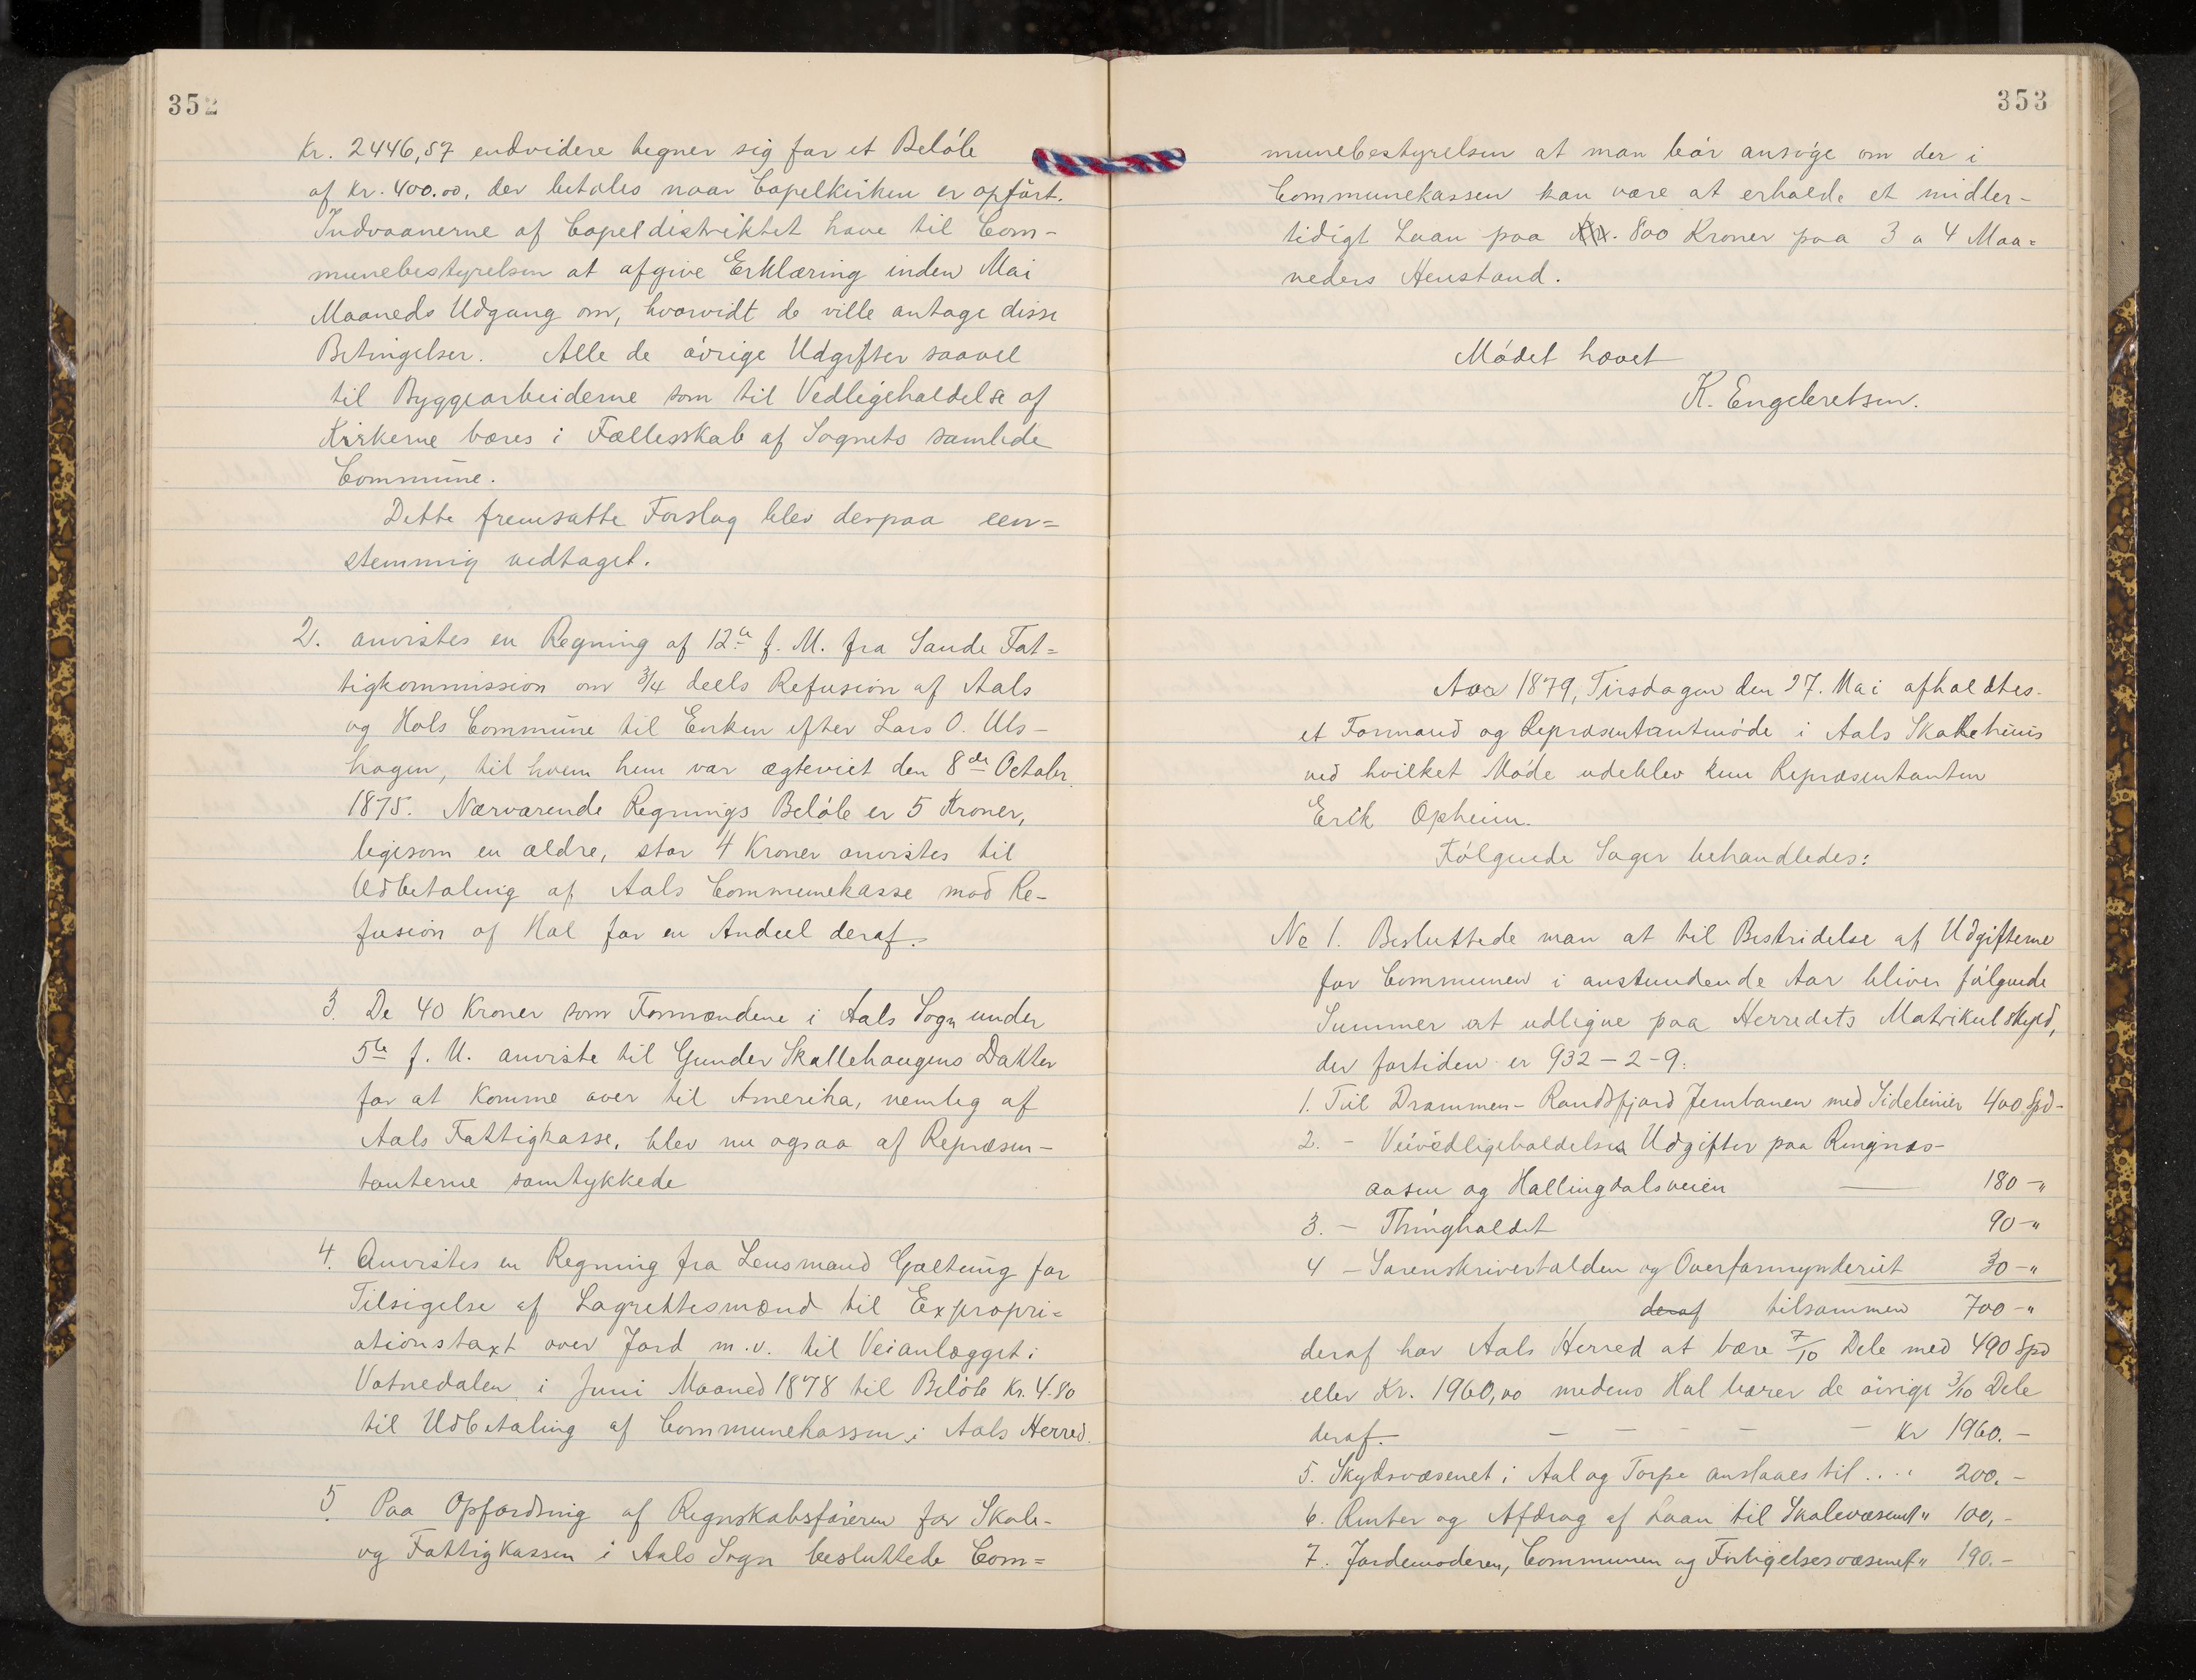 352
Kr. 2446,57 endvidere tegner sig for et Beløb
af Kr. 400.00, der betales naar Capelkirken er opført.
Indvaanerne af Capeldistriktet have til Com-
munebestyrelsen at afgive Erklæring inden Mai
Maaneds Udgang om, hvorvidt de ville antage disse
Betingelser. Alle de øvrige Udgifter saavel
til Byggearbeiderne som til Vedligeholdelse af
Kirkerne bæres i Fællesskab af Sognets samlede
Commune.
Dette fremsatte Forslag blev derpaa een=
stemmig vedtaget.
2. anvistes en Regning af 12te f. M. fra Sande Fat=
tigkommission om 3/4 deels Refusion af Aals
og Hols Commune til Enken efter Lars O. Uls-
hagen, til hvem hun var ægteviet den 8de October
1875. Nærværende Regnings Beløb er 5 Kroner,
ligesom en ældre, stor 4 Kroner anvistes til
Udbetaling af Aals Communekasse mod Re-
fusion af Hol for en Andeel deraf.
3. De 40 Kroner som Formændene i Aals Sogn under
5te f. M. anviste til Gunder Skallehaugens Datter
for at komme over til Amerika, nemlig af
Aals Fattigkasse, blev nu ogsaa af Repræsen-
tanterne samtykkede
4. Anvistes en Regning fra Lensmand Galtung for
Tilsigelse af Lagrettesmænd til Expropri=
ationstaxt over Jord m.v. til Veianlægget i
Votnedalen i Juni Maaned 1878 til Beløb Kr. 4.80
til Udbetaling af Communekassen i Aals Herred.
5. Paa Opfordring af Regnskabsføreren for Skole-
og Fattigkassen i Aals Sogn besluttede Com=
353
munebestyrelsen at man bør ansøge om der i
Communekassen kan være at erholde et midler-
tidigt Laan paa Kr. 800 Kroner paa 3 a 4 Maa=
neders Henstand.
Mødet hævet
K. Engebretsen.
Aar 1879, Tirsdagen den 27. Mai afholdtes
et Formand og Repræsentantmøde i Aals Skolehuus
ved hvilket Møde udeblev kun Repræsentanten
Erik Opheim.
Følgende Sager behandledes:
No 1. Besluttede man at til Bestridelse af Udgifterne
for Communen i anstundende Aar bliver følgende
Summer at udligne paa Herredets Matrikulskyld,
der fortiden er 932-2-9:
1. Til Drammen-Randsfjord Jernbanen med Sidelinier 400 Spd-
2. - Veivedligeholdelses Udgifter paa Ringnes-
aasen og Hallingdalsveien — 180-"
3. - Thingholdet 90-"
4 - Sorenskriverbolden og Overformynderiet 30-"
deraf tilsammen 700-"
deraf har Aals Herred at bære 7/10 Dele med 490 Spd
eller Kr. 1960,00 medens Hol bærer de øvrige 3/10 Dele
deraf. - - - - - Kr 1960.-
5. Skydsvæsenet i Aal og Torpe anslaaes til .... 200.-
6. Renter og Afdrag af Laan til Skolevæsenet " 100,-
7. Jordemoderen, Communen og Forligelsesvæsenet " 190.-